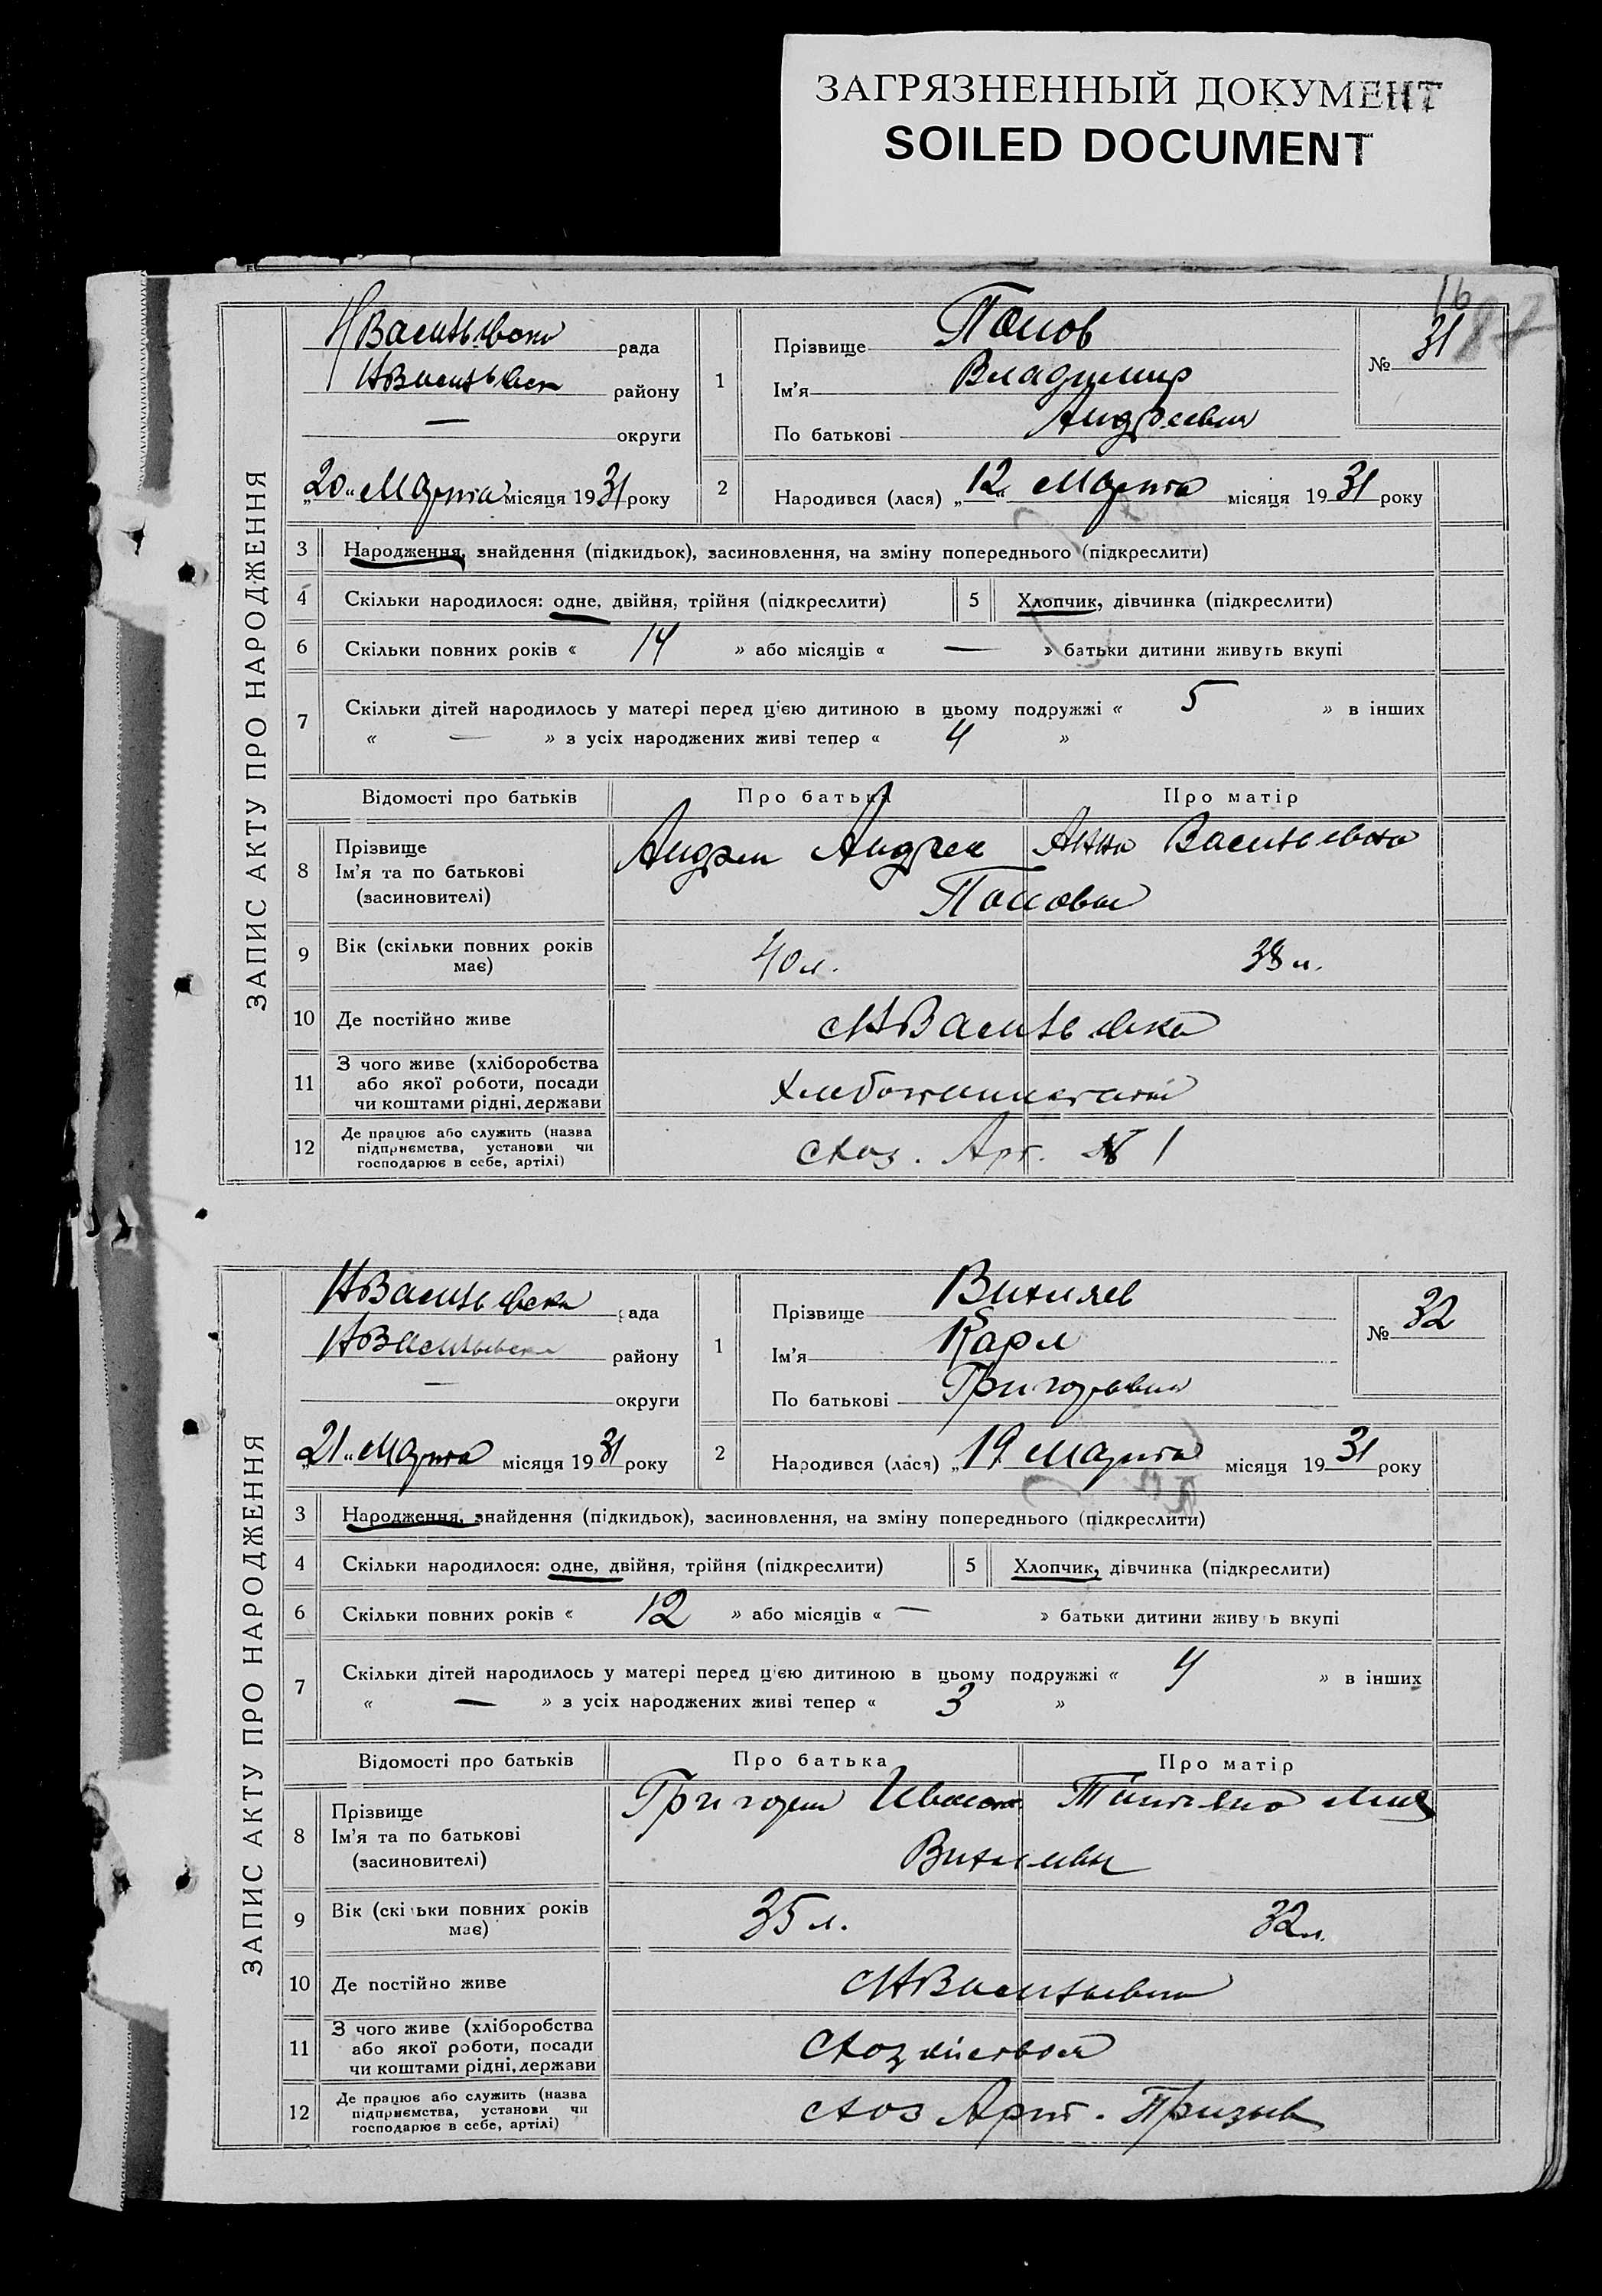 ЗАГРЯЗНЕННЫЙ ДОКУМЕНТ
SOILED DOCUMENT
16
87
ЗАПИС АКТУ ПРО НАРОДЖЕННЯ
рада
району
—
округи
„20“ Марта місяця 1931 року
1
Прізвище Попов
Ім'я Владимир
По батькові Андреевич
№ 31
2
Народився (лася) „12“ Марта місяця 1931 року
3 Народження, знайдення (підкидьок), засиновлення, на зміну попереднього (підкреслити)
4 Скільки народилося: одне, двійня, трійня (підкреслити) 5 Хлопчик, дівчинка (підкреслити)
6 Скільки повних років « 14 » або місяців « — » батьки дитини живуть вкупі
7 Скільки дітей народилось у матері перед цією дитиною в цьому подружжі « 5 » в інших
« — » з усіх народжених живі тепер « 4 »
Відомості про батьків Про батька Про матір
8 Прізвище
Ім'я та по батькові
(засиновителі)
Андреи Андрее Анна Васильевна
Поповы
9 Вік (скільки повних років має) 40 л. 38 л.
10 Де постійно живе НВасильевка
11 З чого живе (хліборобства
або якої роботи, посади
чи коштами рідні, держави
12 Де працює або служить (назва
підприємства, установи чи
господарює в себе, артілі)
Арт. № 1
ЗАПИС АКТУ ПРО НАРОДЖЕННЯ
рада
району
—
округи
„21“ Марта місяця 1931 року
1
Прізвище
Ім'я Карл
По батькові Григорьевич
№ 32
2
Народився (лася) „19 Марта місяця 1931 року
3 Народження, знайдення (підкидьок), засиновлення, на зміну попереднього (підкреслити)
4 Скільки народилося: одне, двійня, трійня (підкреслити) 5 Хлопчик, дівчинка (підкреслити)
6 Скільки повних років « 12 » або місяців « — » батьки дитини живуть вкупі
7 Скільки дітей народилось у матері перед цією дитиною в цьому подружжі « 4 » в інших
« — » з усіх народжених живі тепер « 3 »
Відомості про батьків Про батька Про матір
8 Прізвище
Ім'я та по батькові
(засиновителі)
Григореи Татьяна
9 Вік (скільки повних років має) 35 л. 32 л.
10 Де постійно живе
11 З чого живе (хліборобства
або якої роботи, посади
чи коштами рідні, держави
12 Де працює або служить (назва
підприємства, установи чи
господарює в себе, артілі)
Арт. Призыв